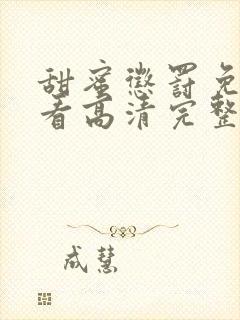 甜蜜懲罰免
看高清完整
成慧